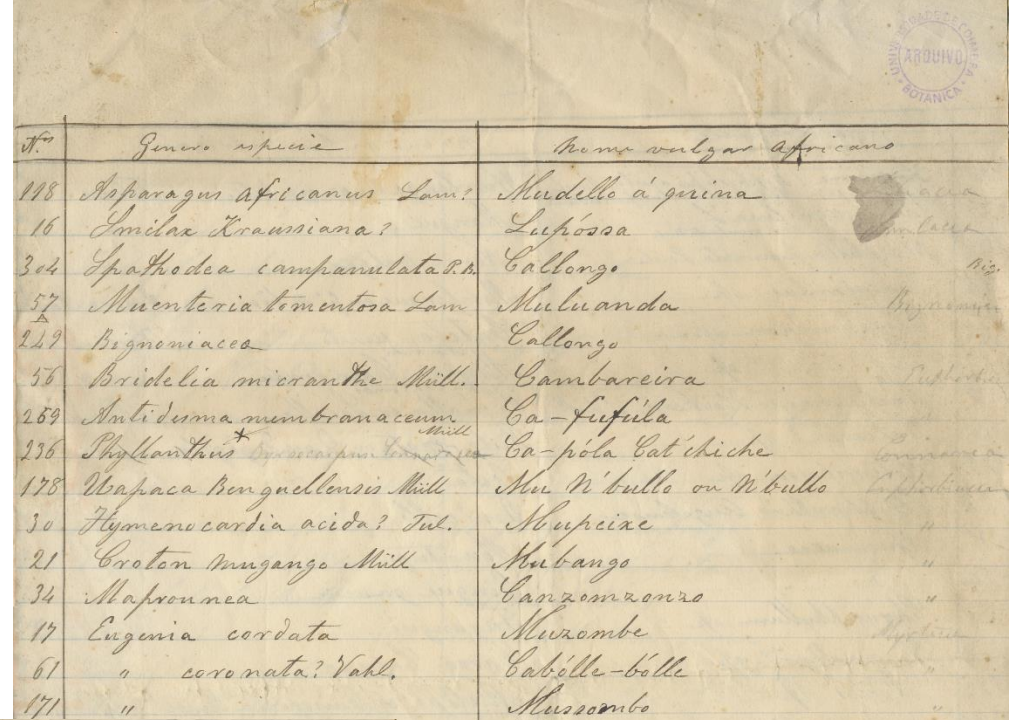 UNIVERSIDADE DE COIMBRA
ARQUIVO
BOTANICA
N.os Genero especie Nome vulgar africano
118 Asparagus africanus Lam? Mudello á quina
16 Smilax Kraussiana? Lupóssa
304 Spathodea campanulata P. B. Callongo Big.
57 A Muenteria tomentosa Lam Muluanda
249 Bignoniacea Callongo
56 Bridelia micranthe Müll. Cambareira
269 Antidesma membranaceum Müll Ca-fufúla
236 Phyllanthus* Ca-póla Cat'chiche
178 Uapaca Benguellensis Müll Mu N'bullo ou N'bullo
30 Hymenocardia acida? Tul. Mupeixe "
21 Croton mugango Müll Mubango "
34 Maprounea Canzomzonzo "
17 Eugenia cordata Muzombe
61 " coronata? Vahl. Cabólle-bólle "
171 " Mussombo "